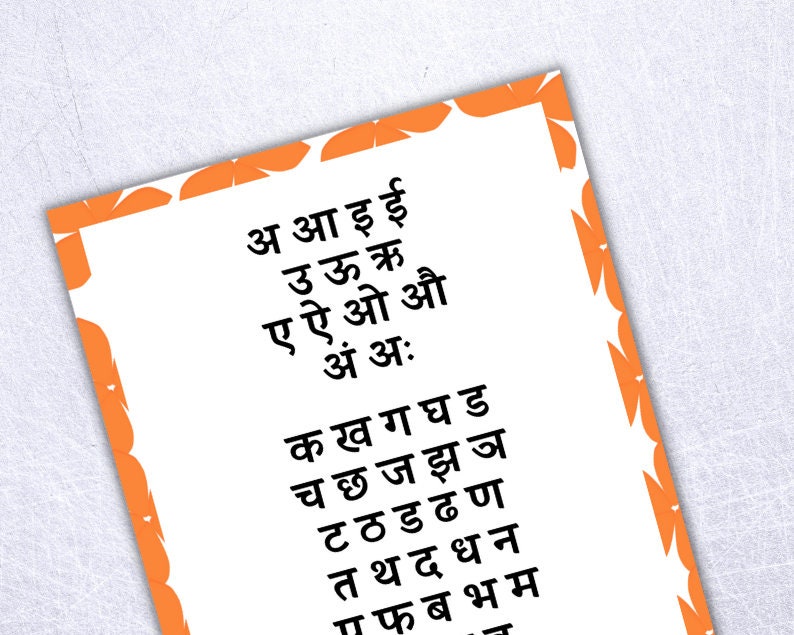 अ आ इ ई
उ ऊ ऋ
ए ऐ ओ औ
अं अः
क ख ग घ ड
च छ ज झ ञ
ट ठ ड ढ ण
त थ द ध न
प फ ब भ म